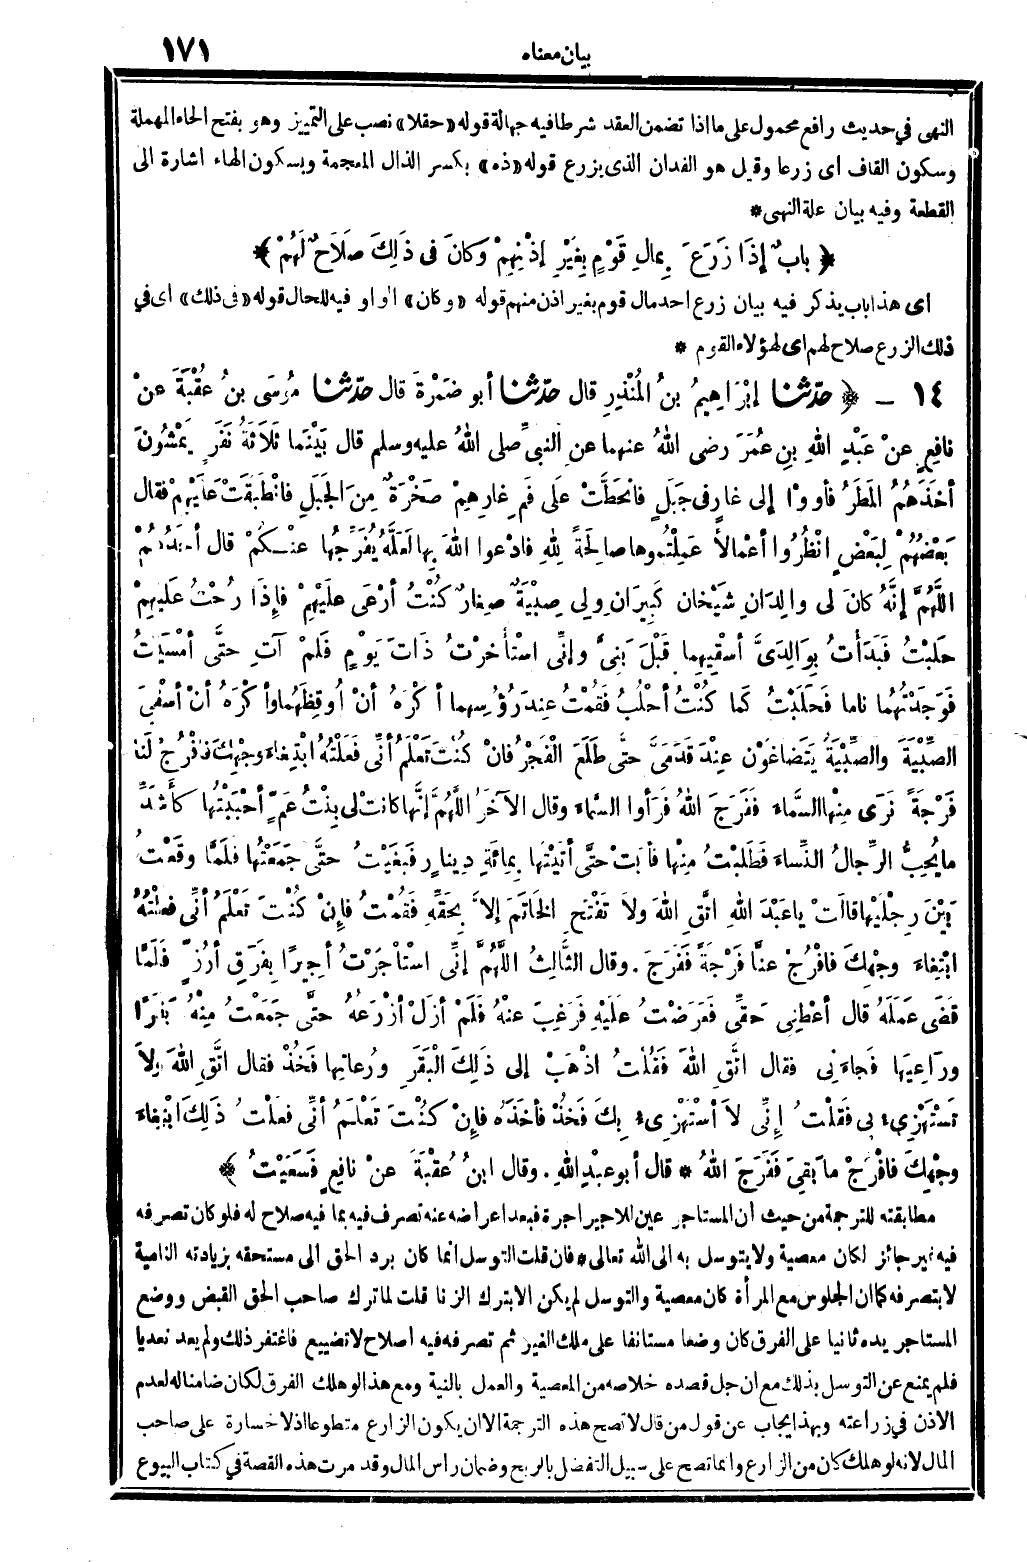 بيان معناه ١٧١
النهى في حديث رافع محمول على ما اذا تضمن العقد شرطا فيه جهالة قوله «حقلا» نصب على التمييز وهو بفتح الحاء المهملة
وسكون القاف اى زرعا وقيل هو الفدان الذى يزرع قوله «ذه» بكسر الذال المعجمة وبسكون الهاء اشارة الى
القطعة وفيه بيان علة النهى *
﴿ بابٌ إذَا زَرَعَ بِمالِ قَوْمٍ بِغَيْرِ إذْنِهِمْ وَكانَ فى ذَلِكَ صَلَاحٌ لَهُمْ ﴾
اى هذا باب يذكر فيه بيان زرع احد مال قوم بغير اذن منهم قوله «وكان» الواو فيه للحال قوله «فى ذلك» اى في
ذلك الزرع صلاح لهم اى لهؤلاء القوم *
١٤ - ﴿ حدّثنا إبْرَاهِيمُ بنُ المُنْذِرِ قال حدّثنا أبو ضَمْرَةَ قال حدّثنا مُوسَى بنُ عُقْبَةَ عنْ
نافِعٍ عنْ عَبْدِ اللهِ بنِ عُمَرَ رضى اللهُ عنهما عنِ النبىِّ صلى اللهُ عليه وسلم قال بَيْنَما ثَلَاثَةُ نَفَرٍ يَمْشُونَ
أخَذَهُمُ المَطَرُ فأووْا إلى غارٍ فى جَبَلٍ فانْحَطَّتْ على فَمِ غارِهِمْ صَخْرَةٌ مِنَ الجَبَلِ فانْطَبَقَتْ عَلَيْهِمْ فقال
بَعْضُهُمْ لِبَعْضٍ انْظُرُوا أعْمالاً عَمِلْتُموها صالِحَةً لِلهِ فادْعوا اللهَ بِها لَعَلَّهُ يُفَرِّجُها عنْكُمْ قال أحَدُهُمْ
اللَّهُمَّ إنَّهُ كانَ لى والِدَانِ شَيْخانِ كَبِيرَانِ ولى صِبْيَةٌ صِغارٌ كُنْتُ أرْعَى علَيْهِمْ فإذَا رُحْتُ عليهِمْ
حَلَبْتُ فَبَدَأْتُ بِوَالِدَىَّ أسْقِيهِما قَبْلَ بَنِىَّ وإنِّى اسْتَأْخَرْتُ ذَاتَ يَوْمٍ فَلَمْ آتِ حتَّى أمْسَيْتُ
فَوَجَدْتُهُما ناما فَحَلَبْتُ كَما كُنْتُ أحْلُبُ فَقُمْتُ عِنْدَ رُؤُسِهِما أكْرَهُ أنْ أُوقِظَهُما وأكْرَهُ أنْ أسْقِىَ
الصِّبْيَةَ والصِّبْيَةُ يَتَضاغَوْنَ عِنْدَ قَدَمَىَّ حتَّى طَلَعَ الْفَجْرُ فانْ كُنْتَ تَعْلَمُ أنِّى فَعَلْتُهُ ابْتِغاءَ وجْهِكَ فافْرُجْ لَنا
فَرْجَةً نَرَى مِنْها السَّماءَ فَفَرَجَ اللهُ فَرَأَوا السَّماءَ وقال الآخَرُ اللَّهُمَّ إنَّها كانَتْ لى بِنْتُ عَمٍّ أحْبَبْتُها كأَشَدِّ
ما يُحِبُّ الرِّجالُ النِّساءَ فَطَلَبْتُ مِنْها فأَبَتْ حتَّى أتَيْتُها بِمِائَةِ دِينارٍ فَبَغَيْتُ حتَّى جَمَعْتُها فَلَمَّا وقَعْتُ
بَيْنَ رِجْلَيْها قالَتْ يا عَبْدَ اللهِ اتَّقِ اللهَ ولاَ تَفْتَحِ الخَاتَمَ إلاَّ بِحَقِّهِ فَقُمْتُ فإنْ كُنْتَ تَعْلَمُ أنِّى فعَلْتُهُ
ابْتِغاءَ وجْهِكَ فافْرُجْ عنَّا فَرْجَةً فَفَرَجَ . وقال الثَّالِثُ اللَّهُمَّ إنِّى اسْتَأْجَرْتُ أجِيرًا بِفَرَقِ أرُزٍّ فَلَمَّا
قَضَى عَمَلَهُ قال أعْطِنِى حَقِّى فَعَرَضْتُ علَيْهِ فَرَغِبَ عنْهُ فَلَمْ أزَلْ أزْرَعُهُ حتَّى جَمَعْتُ مِنْهُ بَقَرًا
ورَاعِيَها فَجاءَنِى فقال اتَّقِ اللهَ فَقُلْتُ اذْهَبْ إلى ذَلِكَ الْبَقَرِ ورُعاتِها فَخُذْ فقال اتَّقِ اللهَ ولاَ
تَسْتَهْزِىءْ بى فَقلْتُ إنِّى لاَ أسْتَهْزِىءُ بِكَ فَخُذْ فأخَذَهُ فإنْ كُنْتَ تَعْلَمُ أنِّى فعَلْتُ ذَلِكَ ابْتِغاءَ
وجْهِكَ فافْرُجْ ما بَقِىَ فَفَرَجَ اللهُ * قال أبو عبْدِ اللهِ . وقال ابنُ عُقْبَةَ عنْ نافِعٍ فَسَعَيْتُ ﴾
مطابقته للترجمة من حيث أن المستاجر عين للاجير اجرة فبعد اعراضه عنه تصرف فيه بما فيه صلاح له فلو كان تصرفه
فيه غير جائز لكان معصية ولا يتوسل به الى الله تعالى * فان قلت التوسل انما كان برد الحق الى مستحقه بزيادته النامية
لا بتصرفه كما ان الجلوس مع المرأة كان معصية والتوسل لم يكن الا بترك الزنا قلت لما ترك صاحب الحق القبض ووضع
المستاجر يده ثانيا على الفرق كان وضعا مستانفا على ملك الغير ثم تصرفه فيه اصلاح لا تضييع فاغتفر ذلك ولم يعد تعديا
فلم يمنع عن التوسل بذلك مع ان جل قصده خلاصه من المعصية والعمل بالنية ومع هذا لو هلك الفرق لكان ضامنا له لعدم
الاذن في زراعته وبهذا يجاب عن قول من قال لا تصح هذه الترجمة الا ان يكون الزارع متطوعا اذ لا خسارة على صاحب
المال لانه لو هلك كان من الزارع وانما تصح على سبيل التفضل بالربح وضمان رأس المال وقد مرت هذه القصة في كتاب البيوع